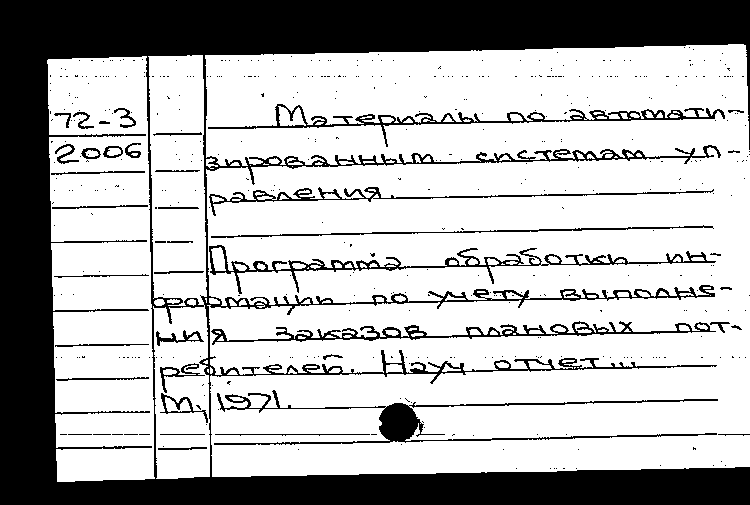 72-3 Материалы по автомати-
2006 зированным системам уп-
равления.
Программа обработки ин-
формации по учету выполне-
ния заказов плановых пот-
ребителей. Науч. отчет...
М., 1971.